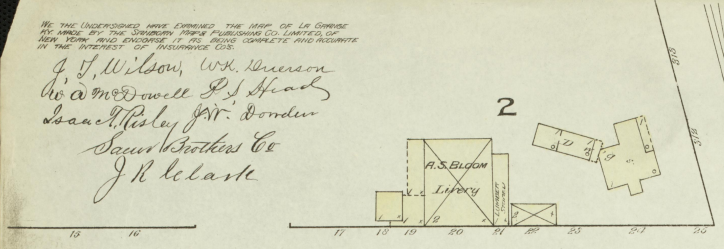 WE THE UNDERSIGNED HAVE EXAMINED THE MAP OF LA GRANGE
KY. MADE BY THE SANBORN MAP & PUBLISHING CO. LIMITED, OF
NEW YORK AND ENDORSE IT AS BEING COMPLETE AND ACCURATE
IN THE INTEREST OF INSURANCE CO'S.
J. T. Wilson, W.K.
McDowell R S Head
Isaac T. Risley J.W. Dowden
Sauer Brothers Co
J R Clark
2
A.S. BLOOM
Livery
2
D
S
15 16 17 18 19 20 21 22 23 24 25